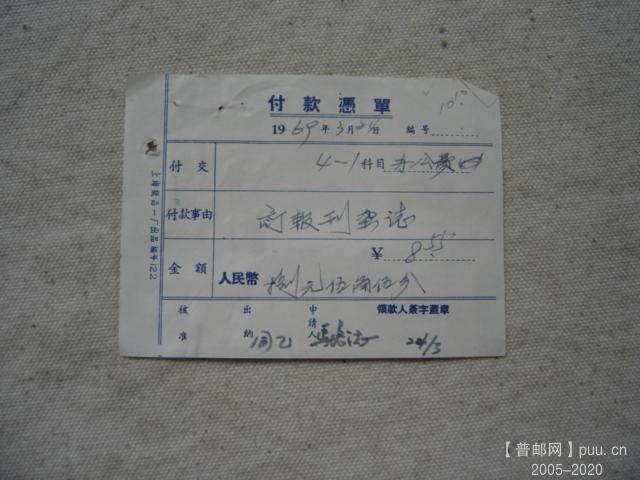 付款憑單
1969年3月24日 編號
付交 4-1科目办公费
付款事由 訂報刊杂誌
¥ 8.55
金額 人民幣 捌元伍角伍分
核准 出納 申請人 領款人簽字蓋章
24/3
上海紙品一厂出品編号122
【普邮网】puu.cn
2005-2020